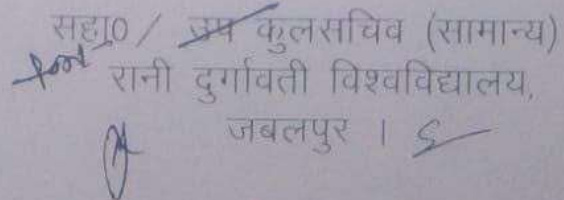 सहा0 / उप कुलसचिव (सामान्य)
रानी दुर्गावती विश्वविद्यालय,
जबलपुर ।